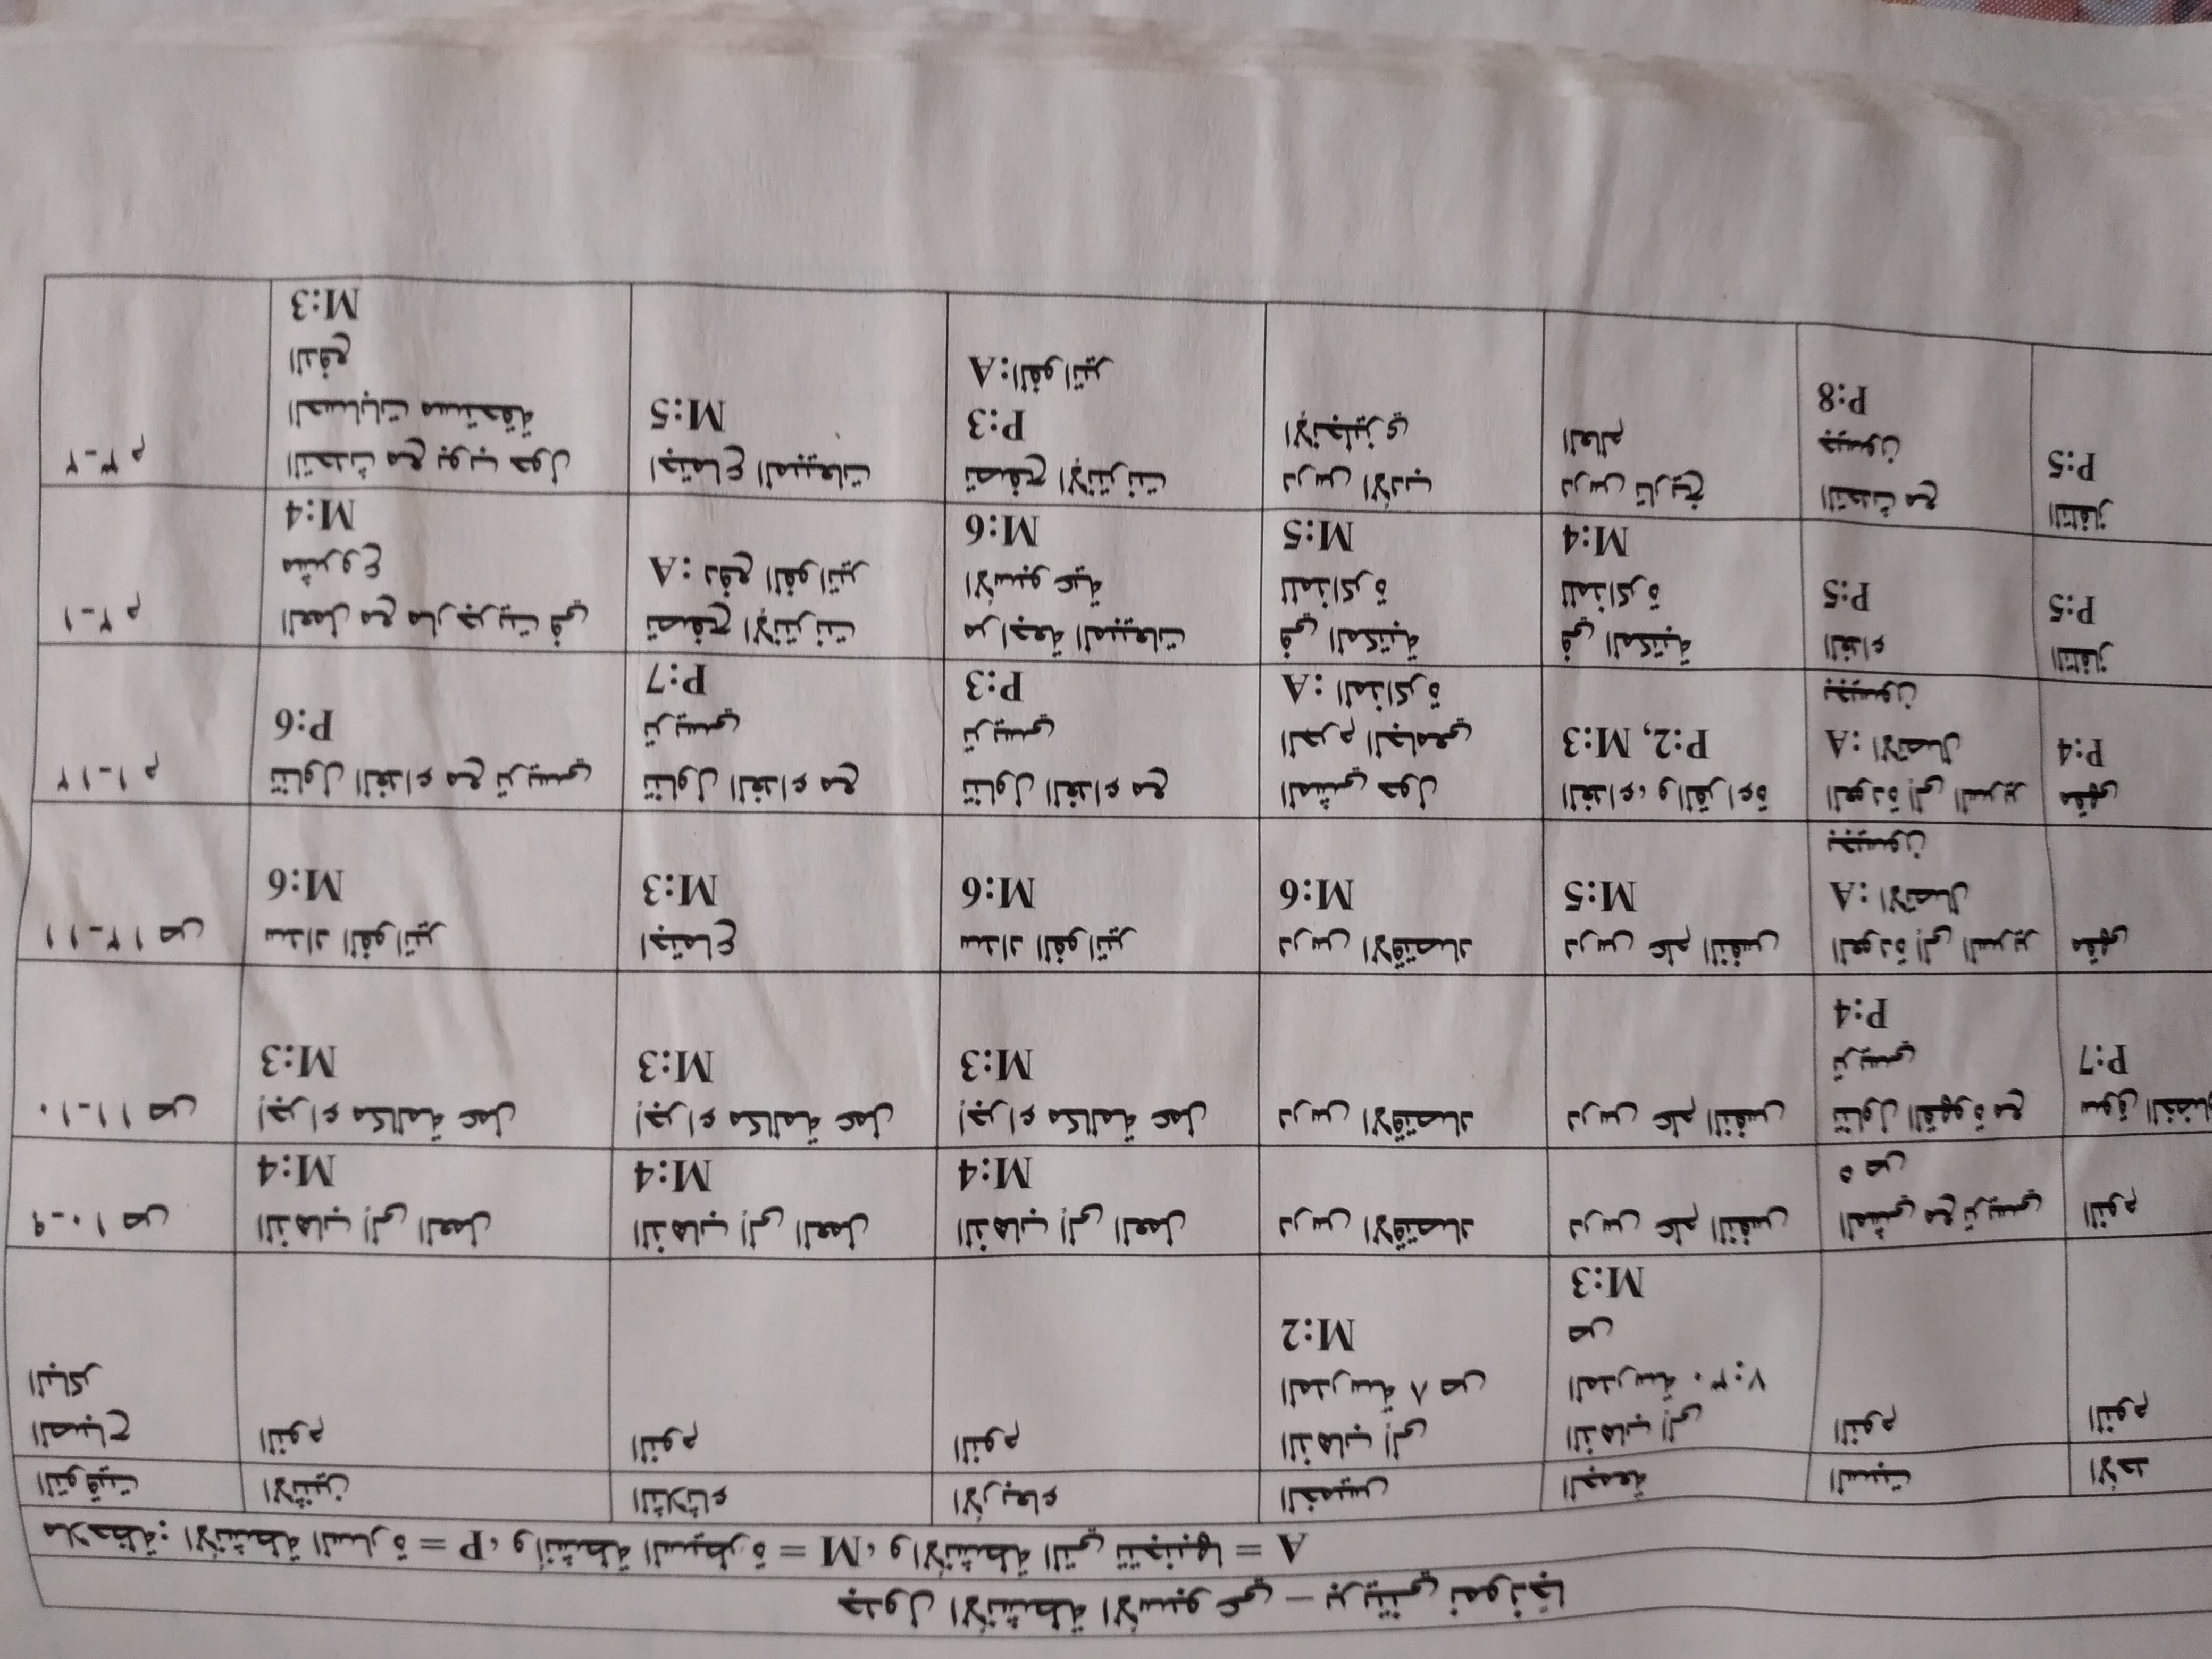 جدول الأنشطة الأسبوعي – بريتني نموذجًا
ملاحظة: الأنشطة السارة = P، وأنشطة السيطرة = M، والأنشطة التي تتجنبها =
A
التوقيت
الاثنين
الثلاثاء
الأربعاء
الخميس
الجمعة
السبت
الأحد
الصباح
الباكر
النوم
النوم
النوم
الذهاب إلى
المدرسة ٨ ص
M:2
الذهاب إلى
المدرسة ٧:٣٠
ص
M:3
النوم
النوم
٩-١٠ ص
الذهاب إلى العمل
M:4
الذهاب إلى العمل
M:4
الذهاب إلى العمل
M:4
درس الاقتصاد
درس علم النفس
المشي مع تريسي
٥ ص
النوم
١٠-١١ ص
إجراء مكالمة عمل
M:3
إجراء مكالمة عمل
M:3
إجراء مكالمة عمل
M:3
درس الاقتصاد
درس علم النفس
تناول القهوة مع
تريسي
P:4
سوق الخضار
P:7
١١-١٢ ص
سداد الفواتير
M:6
اجتماع
M:3
سداد الفواتير
M:6
درس الاقتصاد
M:6
درس علم النفس
M:5
العودة إلى السرير
A: الاتصال
بجيسون
مقهى
١٢-١ م
تناول الغداء مع تريسي
P:6
تناول الغداء مع
تريسي
P:7
تناول الغداء مع
تريسي
P:3
المشي حول
الحرم الجامعي
A: المذاكرة
الغداء، والقراءة
P:2, M:3
العودة إلى السرير
A: الاتصال
بجيسون
مقهى
P:4
١-٢ م
العمل مع مارجريت في
مشروع
M:4
تصفح الإنترنت
A: دفع الفواتير
مراجعة المبيعات
الأسبوعية
M:6
في المكتبة
للمذاكرة
M:5
في المكتبة
للمذاكرة
M:4
الغداء
P:5
التلفاز
P:5
٢-٣ م
التحدث مع بوب حول
الحسابات مستحقة
الدفع
M:3
اجتماع المبيعات
M:5
تصفح الإنترنت
P:3
A:الفواتير
درس الأدب
الإنجليزي
درس تاريخ
العالم
التحدث مع
جيسون
P:8
التلفاز
P:5